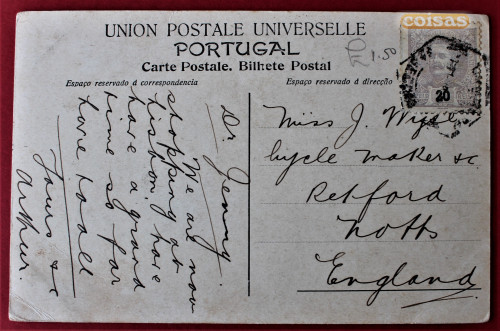 coisas
UNION POSTALE UNIVERSELLE
PORTUGAL
Carte Postale. Bilhete Postal
Espaço reservado á correspondencia
Espaço reservado á direcção
1.50
20
Dr Jenny.
We are now
stopping at
Lisbon, have
have a grand
time so far
love to all
Yours &c
Arthur.
Miss J.
Cycle maker &c
Retford
Notts
England